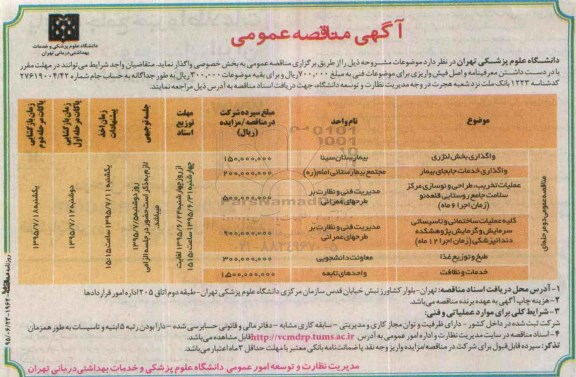 آگهی مناقصه عمومی
دانشگاه علوم پزشکی و خدمات
بهداشتی درمانی تهران
دانشگاه علوم پزشکی تهران در نظر دارد موضوعات مشروحه ذیل را از طریق برگزاری مناقصه عمومی به بخش خصوصی واگذار نماید. متقاضیان واجد شرایط می‌توانند در مهلت مقرر
با در دست داشتن معرفینامه و اصل فیش واریزی برای موضوعات فنی به مبلغ ۷۰۰/۰۰۰ ریال و برای بقیه موضوعات ۳۰۰/۰۰۰ ریال به طور جداگانه به حساب جام شماره ۲۷۶۱۹۰۰۴/۴۲
کدشناسه ۱۲۲۳ بانک ملت نزد شعبه هجرت در وجه مدیریت نظارت و توسعه دانشگاه، جهت دریافت اسناد مناقصه به آدرس ذیل مراجعه نمایند.
موضوع
نام واحد
مبلغ سپرده شرکت در مناقصه/مزایده (ریال)
مهلت توزیع اسناد
جلسه توجیهی
زمان اخذ پیشنهادات
زمان بازگشایی پاکات مرحله اول
زمان بازگشایی پاکات مرحله دوم
واگذاری بخش لنژری بیمارستان سینا ۱۵۰,۰۰۰,۰۰۰
واگذاری خدمات جابجای بیمار مجتمع بیمارستانی امام(ره) ۲۰۰,۰۰۰,۰۰۰
عملیات تخریب، طراحی و نوسازی مرکز سلامت جامع روستایی قلعه نو (زمان اجرا ۶ ماه) مدیریت فنی و نظارت بر طرحهای عمرانی ۵۰۰,۰۰۰,۰۰۰
کلیه عملیات ساختمانی و تاسیساتی سرمایش و گرمایش پژوهشکده دندانپزشکی (زمان اجرا ۱۲ ماه) مدیریت فنی و نظارت بر طرحهای عمرانی ۹۰۰,۰۰۰,۰۰۰
طبخ و توزیع غذا معاونت دانشجویی ۳۰۰,۰۰۰,۰۰۰
خدمات و نظافت واحدهای تابعه ۱,۵۰۰,۰۰۰,۰۰۰
مناقصه عمومی دو مرحله‌ای
یکشنبه ۱۳۹۵/۷/۱۱ ساعت ۱۵:۱۵
دوشنبه ۱۳۹۵/۷/۱۲
یکشنبه ۱۳۹۵/۷/۱۸
۱- آدرس محل دریافت اسناد مناقصه: تهران- بلوار کشاورز نبش خیابان قدس سازمان مرکزی دانشگاه علوم پزشکی تهران- طبقه دوم اتاق ۲۰۵ اداره امور قراردادها
۲- هزینه چاپ آگهی به عهده برنده مناقصه می‌باشد.
۳- شرایط کلی برای موارد عملیاتی و فنی:
شرکت ثبت شده در داخل کشور - دارای ظرفیت و توان مجاز کاری و مدیریتی - سابقه کاری مشابه - دفاتر مالی و قانونی حسابرسی شده - دارا بودن رتبه ۵ ابنیه و تاسیسات به طور همزمان
۴- اسناد مناقصه در سایت مدیریت نظارت و اداره امور عمومی به آدرس http://vcmdrp.tums.ac.ir قابل مشاهده می‌باشد.
تذکر: سپرده قابل قبول برای شرکت در مناقصه/مزایده واریز وجه نقد یا ضمانت نامه بانکی معتبر با مهلت حداقل ۳ ماه اعتبار می‌باشد.
مدیریت نظارت و توسعه امور عمومی دانشگاه علوم پزشکی و خدمات بهداشتی درمانی تهران